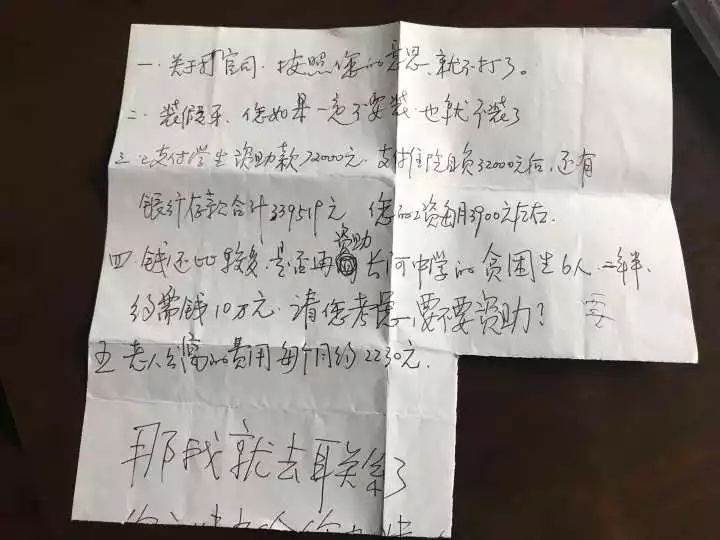 一. 关于打官司. 按照您的意思、就不打了。
二. 装假牙、您如果一定不安装也就不装了
三. 已支付学生资助款72000元. 支付住院自负32000元后, 还有
银行存款合计339519元 您的工资每月3900元左右.
资助
四. 钱还比较多. 是否再 长河中学的贫困生6人. 二年半.
约需钱10万元. 请您考虑, 要不要资助? 要
五 老人公寓的费用每个月约2230元.
那我就去联系了